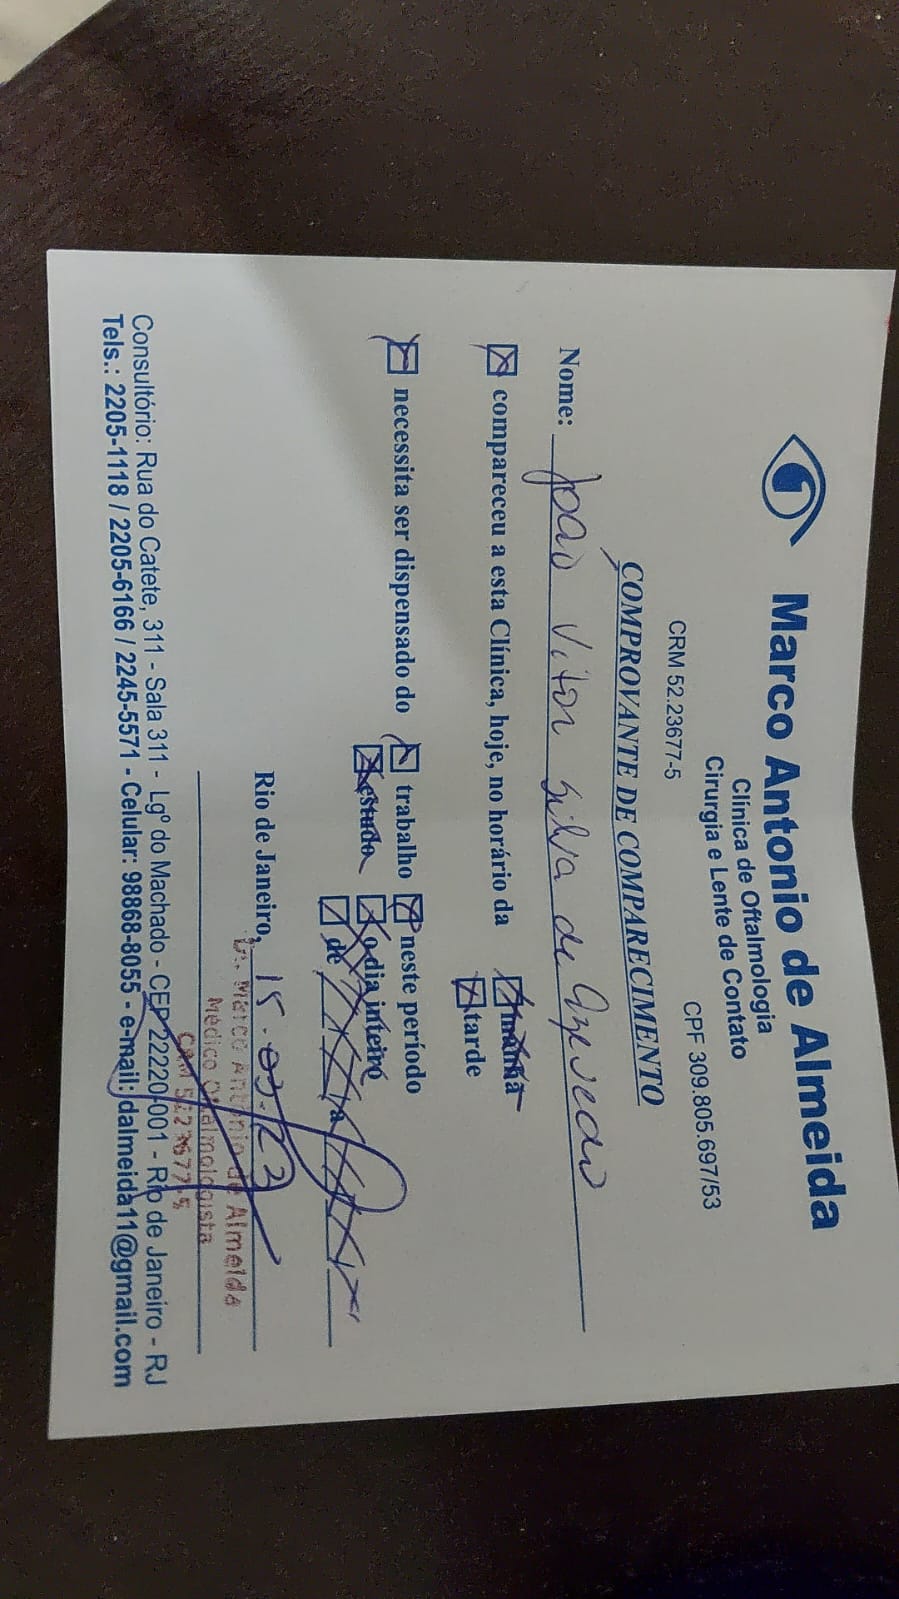 Marco Antonio de Almeida
Clínica de Oftalmologia
Cirurgia e Lente de Contato
CRM 52.23677-5 CPF 309.805.697/53
COMPROVANTE DE COMPARECIMENTO
Nome: João Vitor Silva de Azevedo
compareceu a esta Clínica, hoje, no horário da manhã
tarde
necessita ser dispensado do trabalho neste período
estudo o dia inteiro
de a
Rio de Janeiro, 15.03.23
Dr. Marco Antonio de Almeida
Médico Oftalmologista
CRM 52.23677-5
Consultório: Rua do Catete, 311 - Sala 311 - Lgº do Machado - CEP 22220-001 - Rio de Janeiro - RJ
Tels.: 2205-1118 / 2205-6166 / 2245-5571 - Celular: 98868-8055 - e-mail: dalmeida11@gmail.com